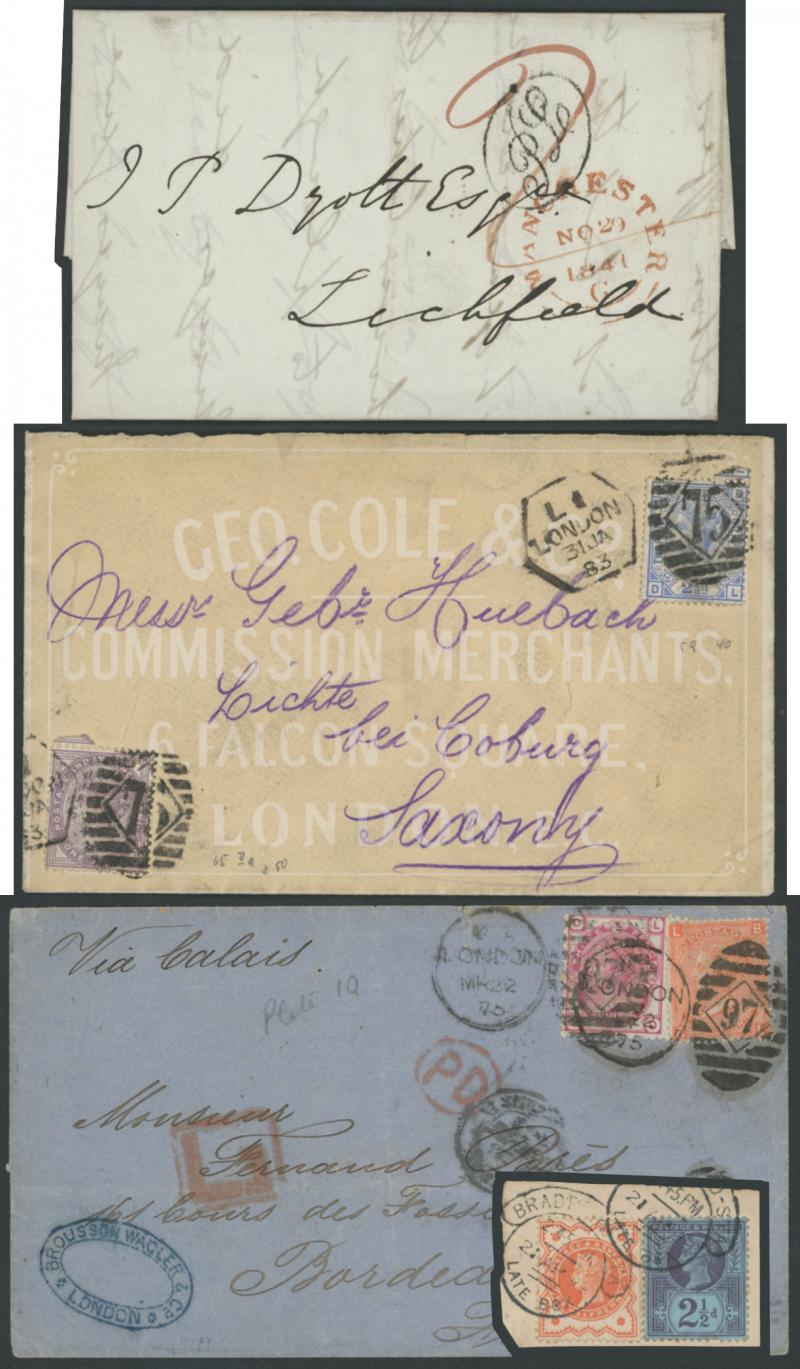 J P Dyott Esqre
MANCHESTER
NO 29
1841
G
Lichfield
GEO. COLE & Co.
L 1
LONDON
31 JA
83
75
2½d
D L
Messrs Gebr. Huebach
COMMISSION MERCHANTS.
59 40
Lichte
6 FALCON SQUARE.
bei Coburg
LONDON
Saxony
65
Via Calais
Plate 10
LONDON
MR 22
75
L
LONDON
75
L B
POSTAG
97
PD
Monsieur
Fernand
L
Cours des
Bordea
BROUSSON WAGLER & Co
LONDON
BRADF
21
LATE
45.PM
21
LATE
POSTAGE &
2½d